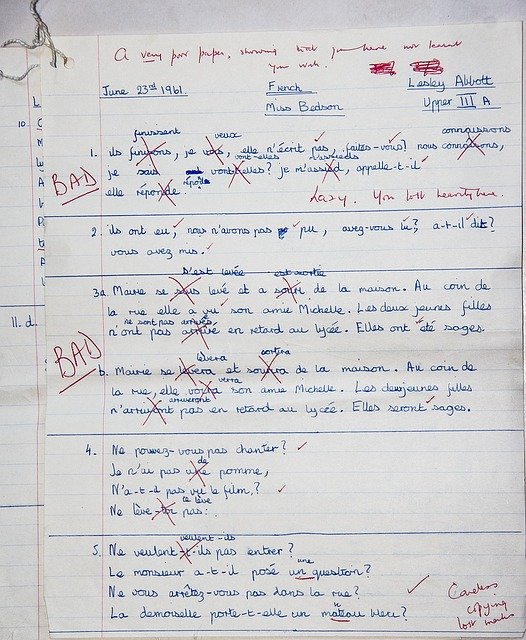 A very poor paper, showing that you have not learnt
your work.
June 23rd 1961. French Lesley Abbott
Miss Bedson Upper III A
finissent veux connaissons
1. ils finirons, je vous, elle n'écrit pas, faites-vous? nous connaisons,
vont-elles m'assieds
je sais vont-elles? je m'assied, appelle-t-il
BAD
répond
elle réponde.
Lazy. You lost heavily here.
2. ils ont eu, nous n'avons pas pu, avez-vous lu? a-t-il dit?
vous avez mis.
s'est levée est sortie
3a. Marie se sous levé et a souri de la maison. Au coin de
la rue elle a vu son amie Michelle. Les deux jeunes filles
ne sont pas arrivés
n'ont pas arrivé en retard au lycée. Elles ont été sages.
BAD
lèvera sortira
b. Marie se levera et sourira de la maison. Au coin de
la rue, elle voira son amie Michelle. Les deux jeunes filles
verra
arriveront
n'arriuront pas en retard au lycée. Elles seront sages.
4. Ne pouvez-vous pas chanter?
de
Je n'ai pas une pomme,
N'a-t-il pas vu le film?
te lève
Ne lève-toi pas.
veulent-ils
5. Ne veulent-t-ils pas entrer?
une
Le monsieur a-t-il posé un question?
Ne vous arrêtez-vous pas dans la rue?
La demoiselle porte-t-elle un mateau bleu?
Careless
copying
lost marks
10.
11. d.